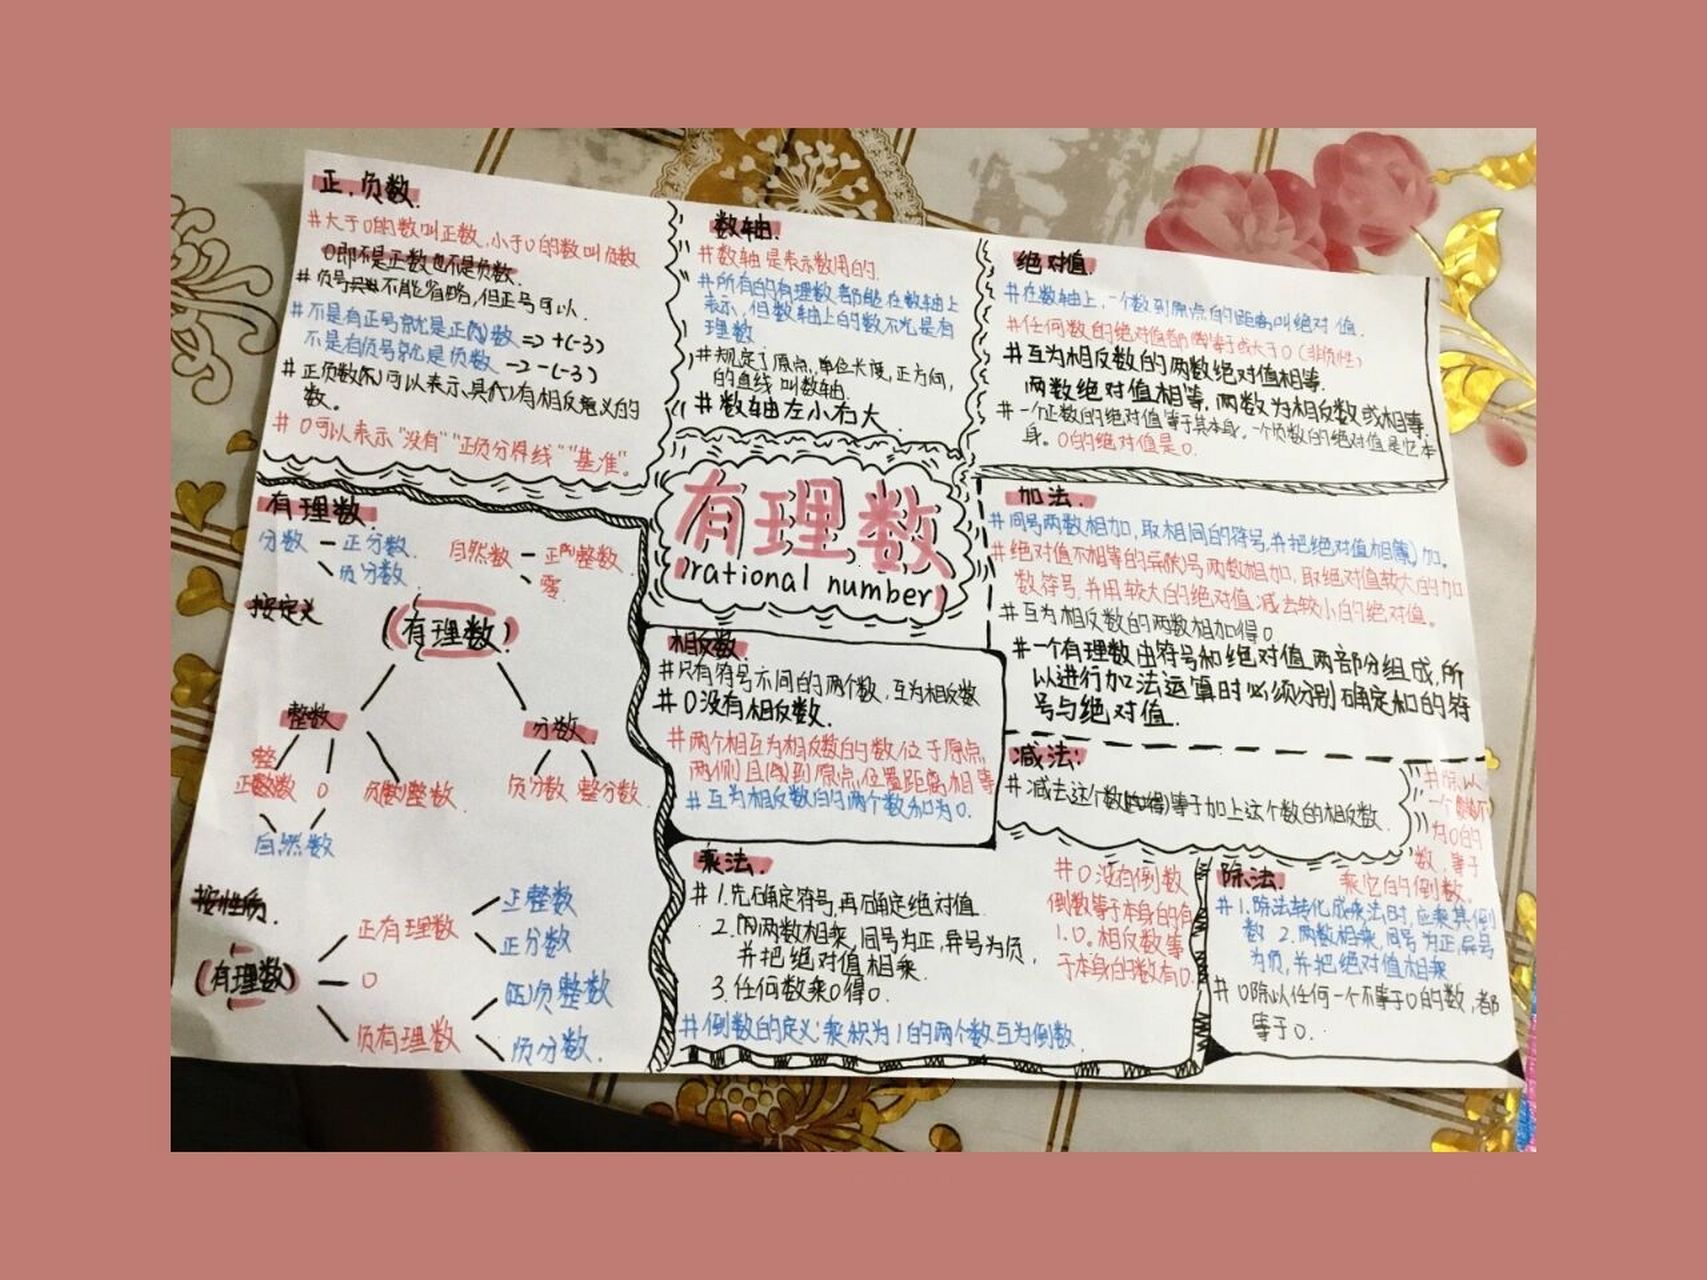 正.负数.
#大于0的数叫正数,小于0的数叫负数
0即不是正数也不是负数.
#负号不能省略,但正号可以.
#不是有正号就是正数=>+(-3)
不是有负号就是负数 -2-(-3)
#正负数可以表示具有相反意义的
数。
# 0可以表示“没有”“正负分界线”“基准”。
数轴.
#数轴是表示数用的.
#所有的有理数都能在数轴上
表示,但数轴上的数不光是有
理数
#规定了原点,单位长度,正方向,
的直线叫数轴.
#数轴左小右大.
绝对值.
#在数轴上,一个数到原点的距离叫绝对值.
#任何数的绝对值都等于或大于0(非负性)
#互为相反数的两数绝对值相等.
两数绝对值相等,两数为相反数或相等.
#一个正数的绝对值等于其本身.一个负数的绝对值是它本
身。0的绝对值是0.
有理数
rational number
有理数.
分数 — 正分数.
负分数.
自然数 — 正整数.
零.
按定义
(有理数)
整数
分数.
正整数 0 负整数.
负分数 整分数.
自然数
按性质.
(有理数)
正有理数
正整数
正分数
0
负有理数
负整数
负分数.
相反数.
#只有符号不同的两个数,互为相反数
#0没有相反数.
#两个相互为相反数的数位于原点
两侧且到原点位置距离相等
#互为相反数的两个数和为0.
加法.
#同号两数相加,取相同的符号,并把绝对值相加.
#绝对值不相等的异号两数相加,取绝对值较大的加
数符号,并用较大的绝对值减去较小的绝对值。
#互为相反数的两数相加得0.
#一个有理数由符号和绝对值两部分组成,所
以进行加法运算时必须分别确定和的符
号与绝对值.
减法:
#减去这个数等于加上这个数的相反数.
乘法.
#1.先确定符号,再确定绝对值.
2.两数相乘,同号为正,异号为负,
并把绝对值相乘.
3.任何数乘0得0.
#倒数的定义:乘积为1的两个数互为倒数.
#0没有倒数
倒数等于本身的有
1.0。相反数等
于本身的数有0.
除法.
#除以
一个不
为0的
数,等于
乘它的倒数.
#1.除法转化成乘法时,应乘其倒
数 2.两数相乘,同号为正,异号
为负,并把绝对值相乘
# 0除以任何一个不等于0的数,都
等于0.